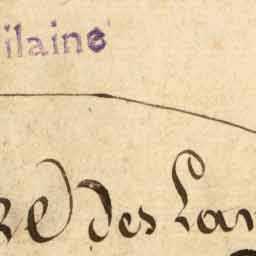 ilaine
re des Lan